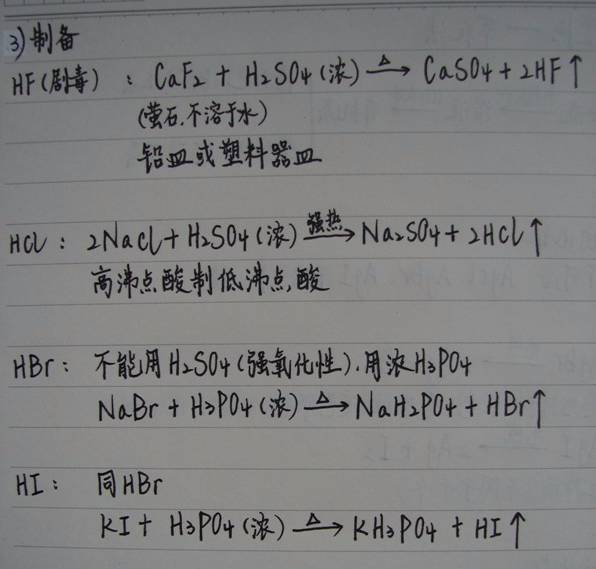 3) 制备
HF(剧毒) : CaF₂ + H₂SO₄(浓) △→ CaSO₄ + 2HF↑
(萤石.不溶于水)
铅皿或塑料器皿
HCl : 2NaCl + H₂SO₄(浓) 强热→ Na₂SO₄ + 2HCl↑
高沸点酸制低沸点酸
HBr : 不能用H₂SO₄(强氧化性).用浓H₃PO₄
NaBr + H₃PO₄(浓) △→ NaH₂PO₄ + HBr↑
HI : 同HBr
KI + H₃PO₄(浓) △→ KH₃PO₄ + HI↑